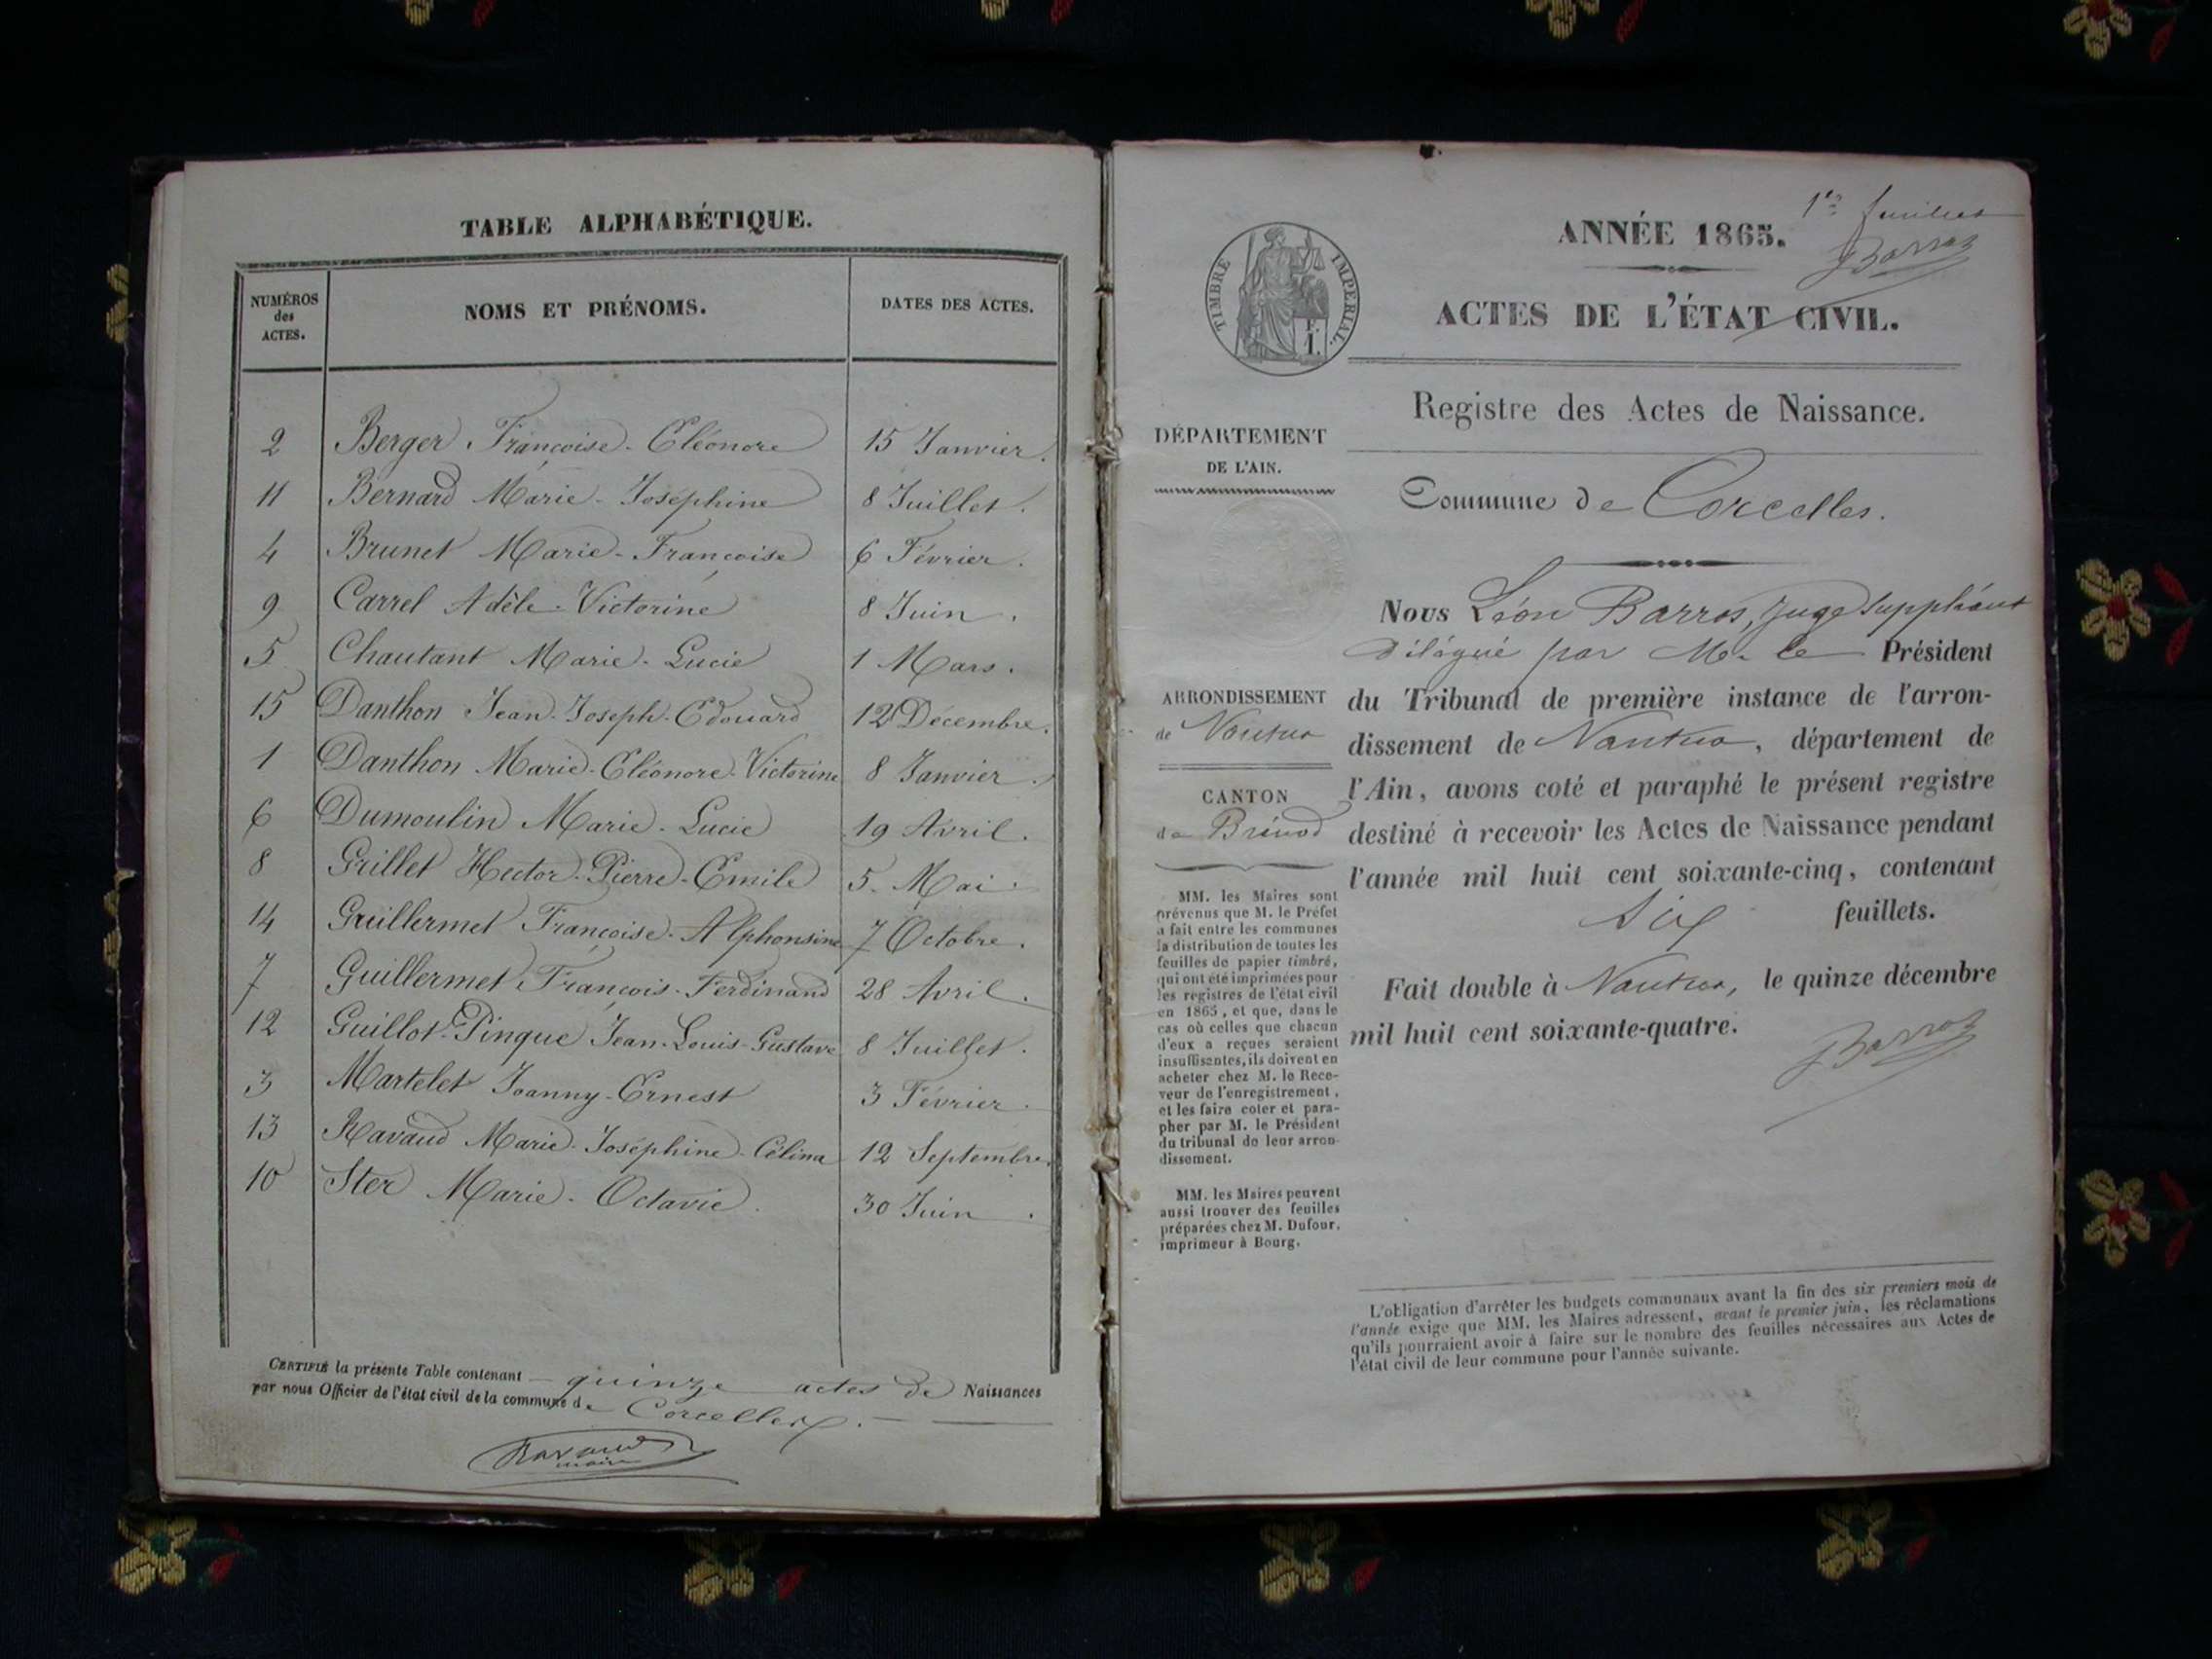 TABLE ALPHABÉTIQUE.
NUMÉROS des ACTES. NOMS ET PRÉNOMS. DATES DES ACTES.
2 Berger Françoise-Eléonore 15 Janvier.
11 Bernard Marie-Joséphine 8 Juillet.
4 Brunet Marie-Françoise 6 Février.
9 Carrel Adèle-Victorine 8 Juin.
5 Chautant Marie-Lucie 1 Mars.
15 Danthon Jean-Joseph-Edouard 12 Décembre.
1 Danthon Marie-Eléonore-Victorine 8 Janvier.
6 Dumoulin Marie-Lucie 19 Avril.
8 Grillet Hector-Pierre-Emile 5 Mai.
14 Guillermet Françoise-Alphonsine 7 Octobre.
7 Guillermet François-Ferdinand 28 Avril.
12 Guillot-Pingue Jean-Louis-Gustave 8 Juillet.
3 Martelet Joanny-Ernest 3 Février.
13 Ravaud Marie-Joséphine-Célina 12 Septembre.
10 Ster Marie-Octavie. 30 Juin.
CERTIFIÉ la présente Table contenant quinze actes de Naissances
par nous Officier de l'état civil de la commune de Corcelles.
Ravaud
maire
1er feuillet
ANNÉE 1865.
Barroz
TIMBRE IMPERIAL.
F.
1.
ACTES DE L'ÉTAT CIVIL.
Registre des Actes de Naissance.
DÉPARTEMENT
DE L'AIN.
Commune de Corcelles.
Nous Léon Barros, juge suppléant
délégué par Mr le Président
ARRONDISSEMENT
de Nantua
du Tribunal de première instance de l'arron-
dissement de Nantua, département de
CANTON
de Brénod
l'Ain, avons coté et paraphé le présent registre
destiné à recevoir les Actes de Naissance pendant
l'année mil huit cent soixante-cinq, contenant
six feuillets.
Fait double à Nantua, le quinze décembre
mil huit cent soixante-quatre.
Barroz
MM. les Maires sont
prévenus que M. le Préfet
a fait entre les communes
la distribution de toutes les
feuilles de papier timbré,
qui ont été imprimées pour
les registres de l'état civil
en 1865, et que, dans le
cas où celles que chacun
d'eux a reçues seraient
insuffisantes, ils doivent en
acheter chez M. le Rece-
veur de l'enregistrement,
et les faire coter et para-
pher par M. le Président
du tribunal de leur arron-
dissement.
MM. les Maires peuvent
aussi trouver des feuilles
préparées chez M. Dufour,
imprimeur à Bourg.
L'obligation d'arrêter les budgets communaux avant la fin des six premiers mois de
l'année exige que MM. les Maires adressent, avant le premier juin, les réclamations
qu'ils pourraient avoir à faire sur le nombre des feuilles nécessaires aux Actes de
l'état civil de leur commune pour l'année suivante.